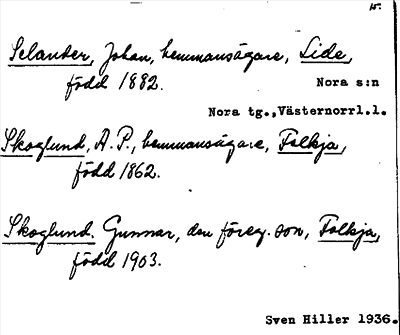 15.
Selander, Johan, hemmansägare, Lide,
född 1882.
Nora s:n
Nora tg., Västernorrl.l.
Skoglund, A. P., hemmansägare, Folkja,
född 1862.
Skoglund. Gunnar, den föreg. son, Folkja,
född 1903.
Sven Hiller 1936.